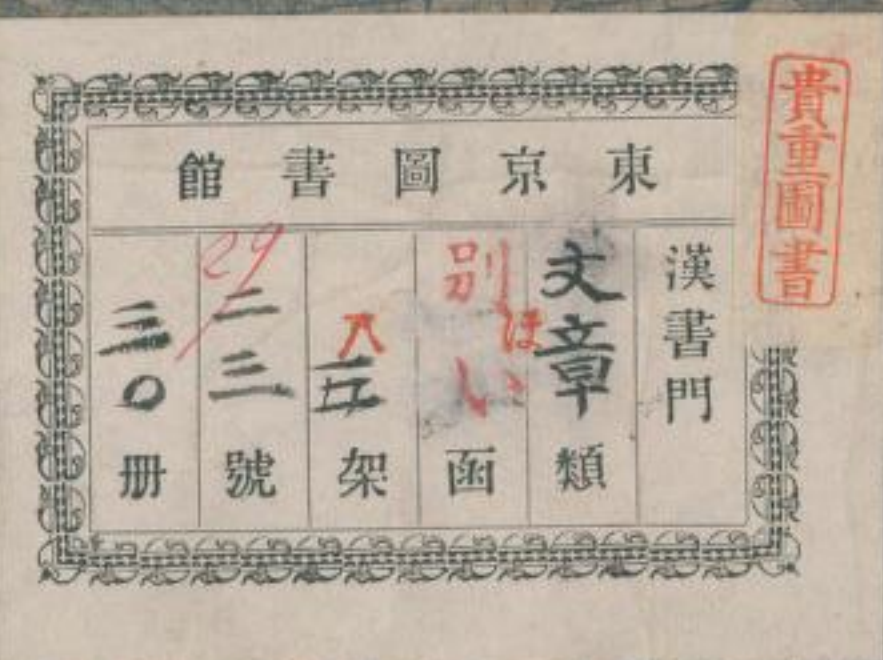 貴重圖書
東京圖書館
漢書門
文章類
別ほい函
八五架
29二三號
三〇册